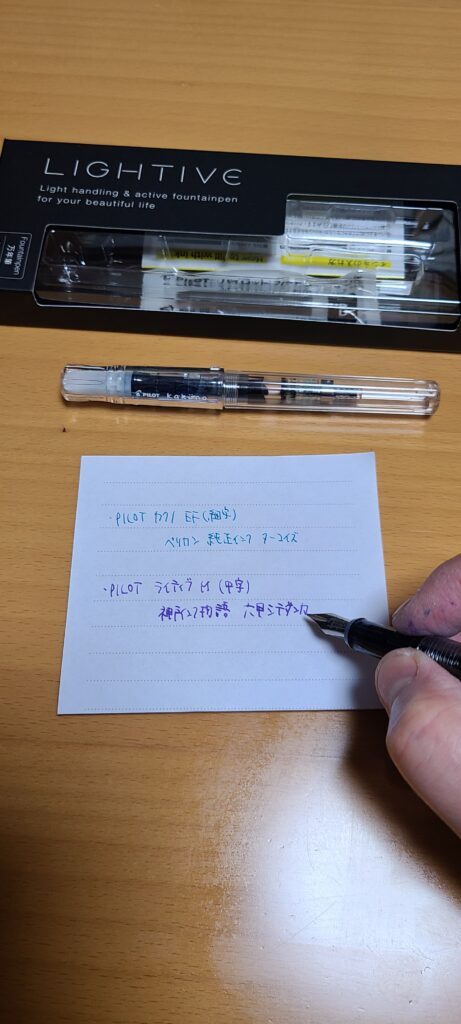 LIGHTIVE
Light handling & active fountainpen
for your beautiful life
Fountainpen
万年筆
How to fit with ink
インキの入れ方
PILOT kakuno
・PILOT カクノ EF(細字)
ペリカン 純正インク ターコイズ
・PILOT ライティブ M (中字)
神戸インク物語 六甲シデ